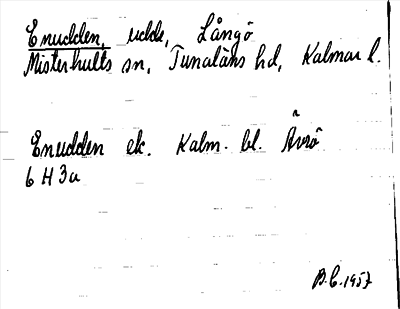 Enudden, udde, Långö
Misterhults sn, Tunaläns hd, Kalmar l.
Enudden ek. Kalm. bl. Ävrö
6 H 3a
B.C. 1957